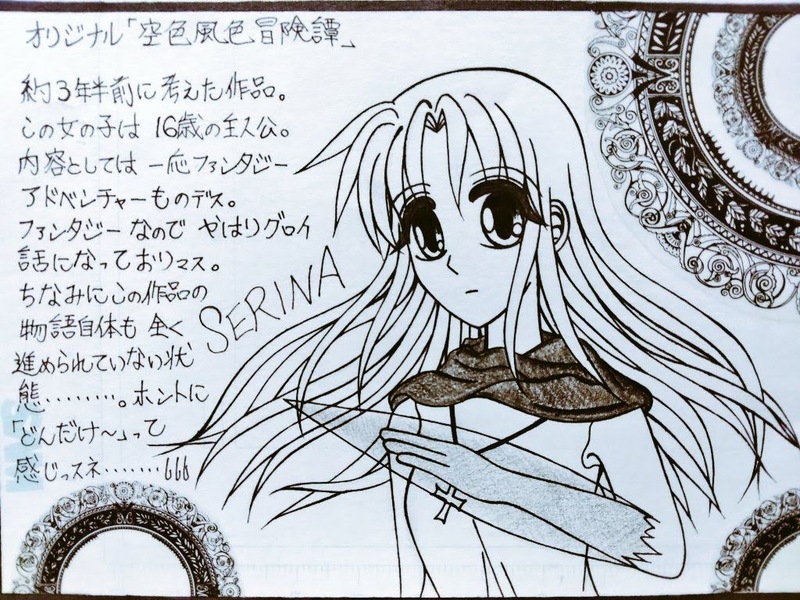 オリジナル「空色風色冒険譚」
約3年半前に考えた作品。
この女の子は 16歳の主人公。
内容としては 一応ファンタジー
アドベンチャーものデス。
ファンタジー なので やはりグロイ
話になっておりマス。
ちなみにこの作品の
物語自体も 全く
進められていない状
態………。ホントに
「どんだけ〜」って
感じっスネ………666
SERINA